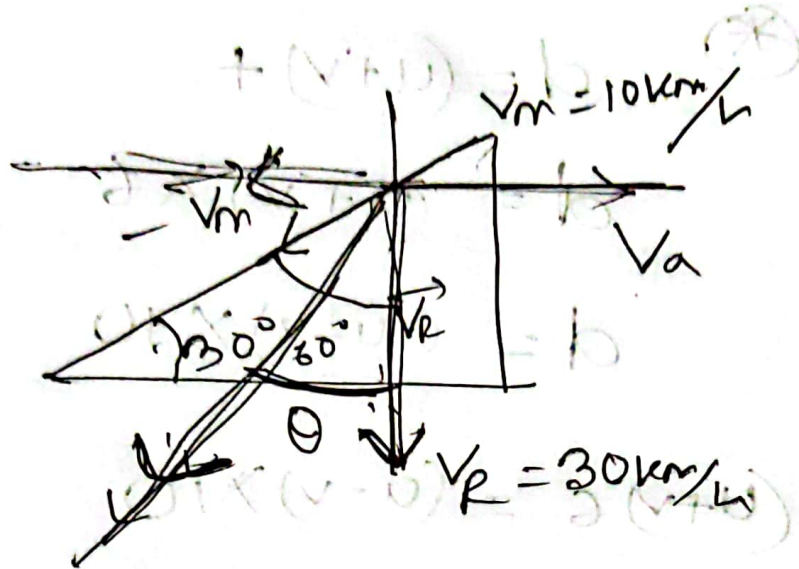 Vm = 10 km/h
Vm
-
Va
VR
30° 60°
θ
VR = 30 km/h